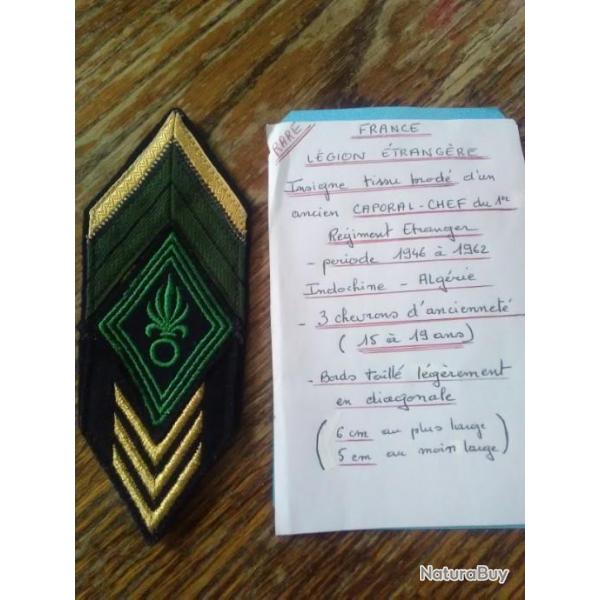 RARE
FRANCE
LÉGION ÉTRANGÈRE
Insigne tissu brodé d'un
ancien CAPORAL-CHEF du 1er
Régiment Etranger
- période 1946 à 1962
Indochine - Algérie
- 3 chevrons d'ancienneté
( 15 à 19 ans )
- Bords taillé légèrement
en diagonale
( 6 cm au plus large
5 cm au moin large )
NaturaBuy